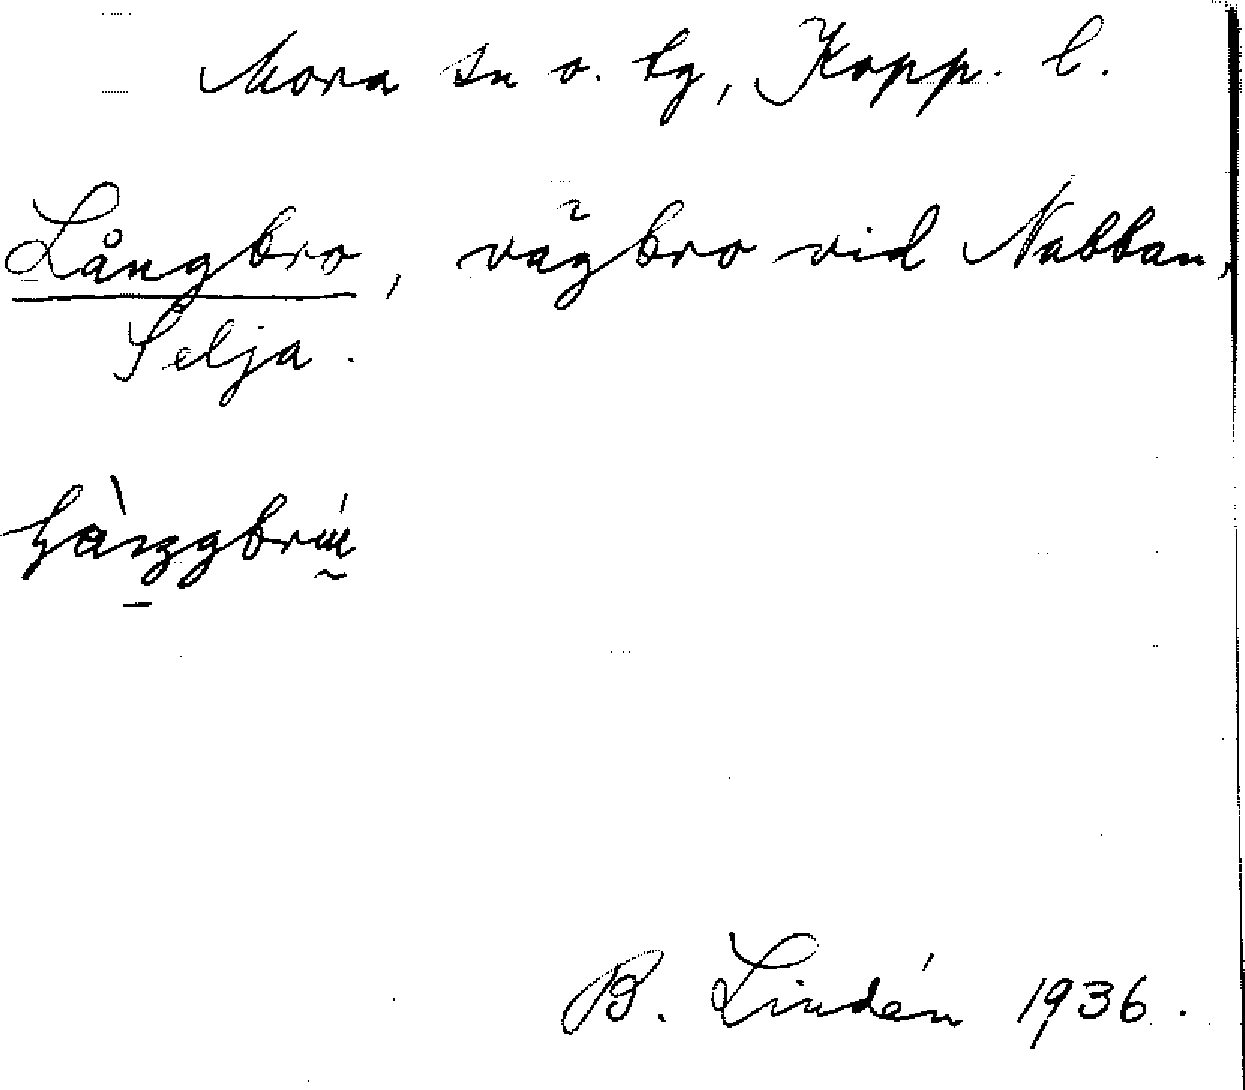 Mora sn o. tg, Kopp. l.
Långbro, vägbro vid Nabban,
Selja.
B. Lindén 1936.